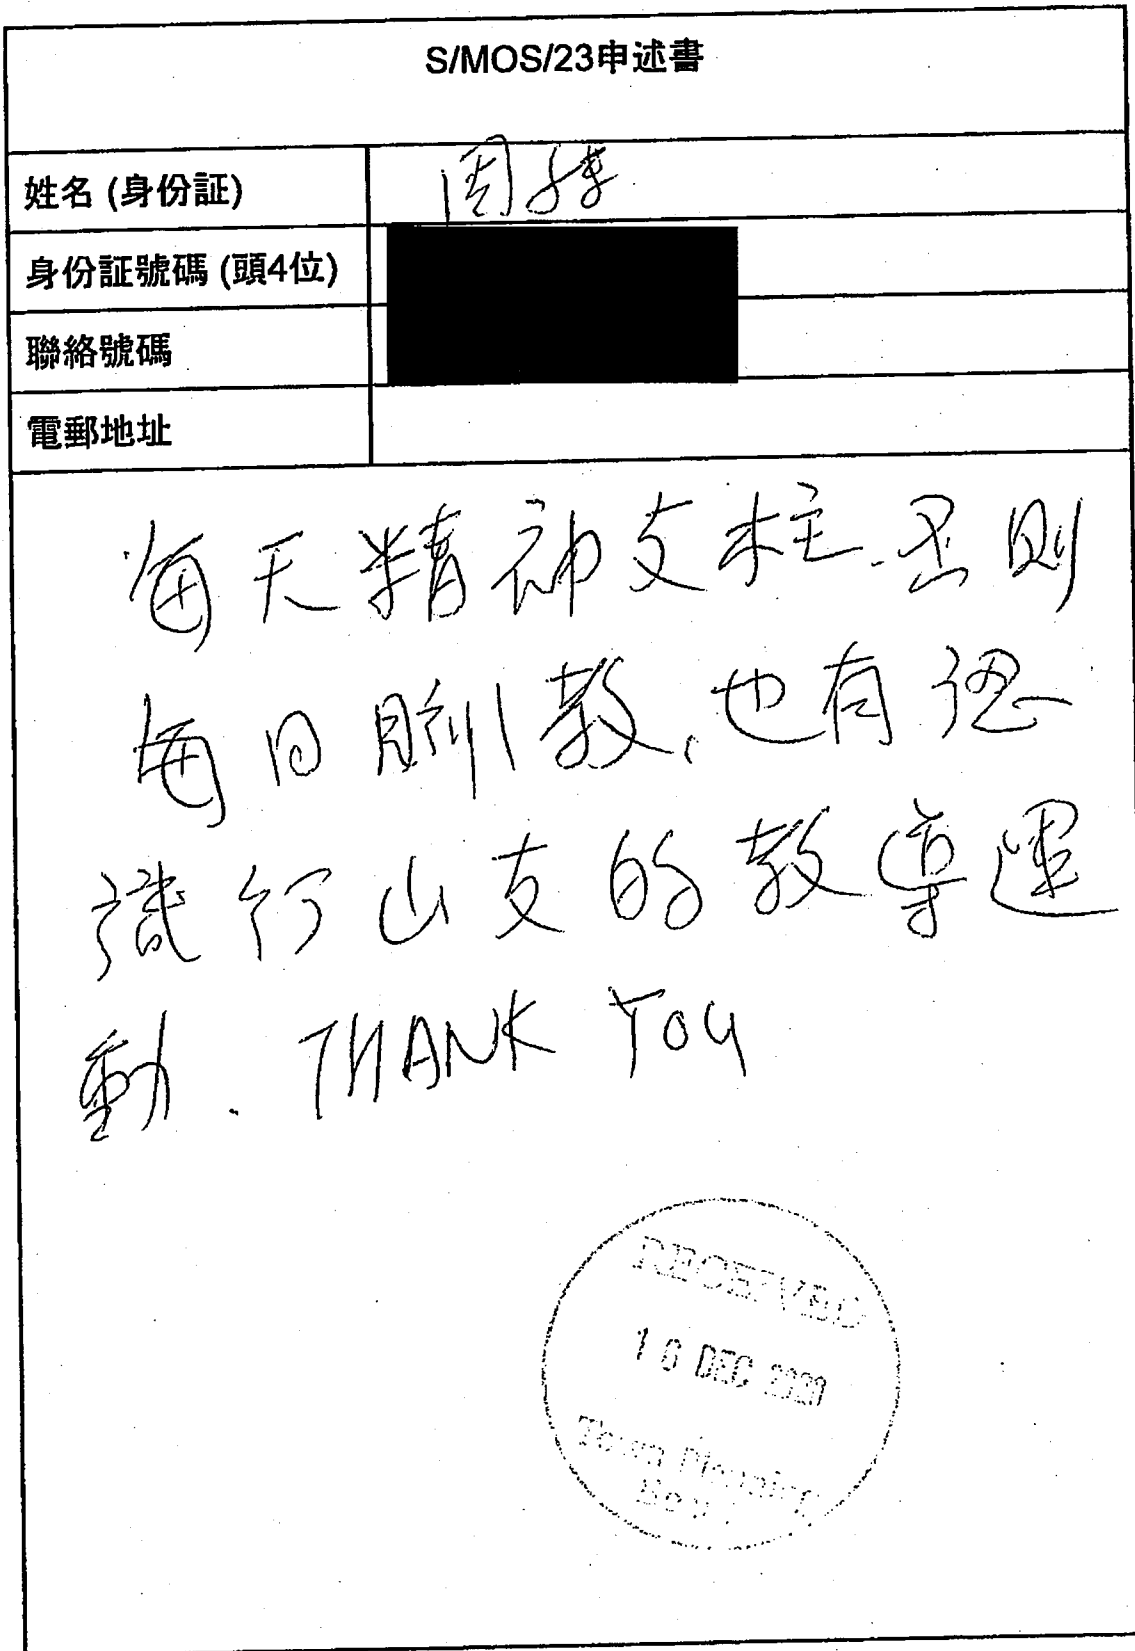 S/MOS/23申述書
姓名 (身份証)
周
身份証號碼 (頭4位)
聯絡號碼
電郵地址
每天精神支柱.否則
每日 教,也有認
識行山支的教導運
動. THANK YOU
RECEIVED
16 DEC 2020
Town Planning
Board